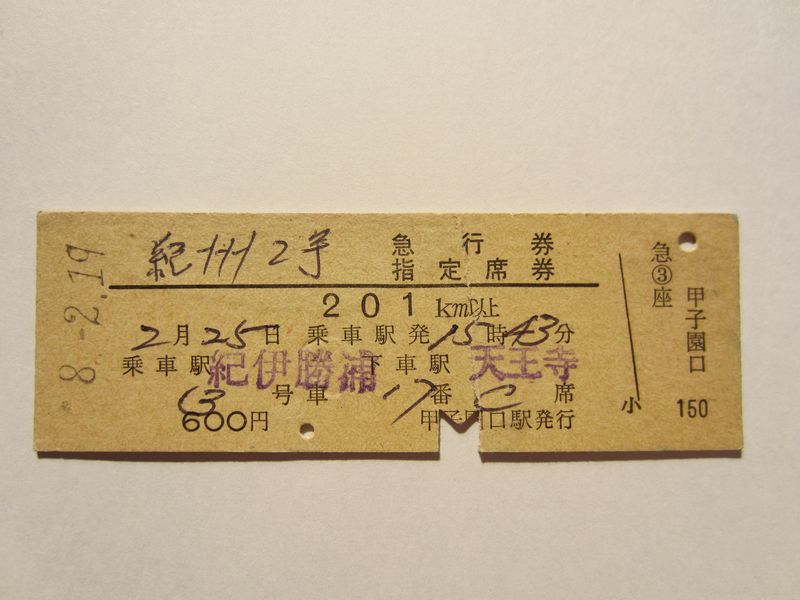 8.-2.19
紀州2号 急行券
指定席券
201km以上
2月25日 乗車駅発 15時43分
乗車駅 紀伊勝浦 下車駅 天王寺
号車 17番C席
600円 甲子園口駅発行
急③座
甲子園口
小 150